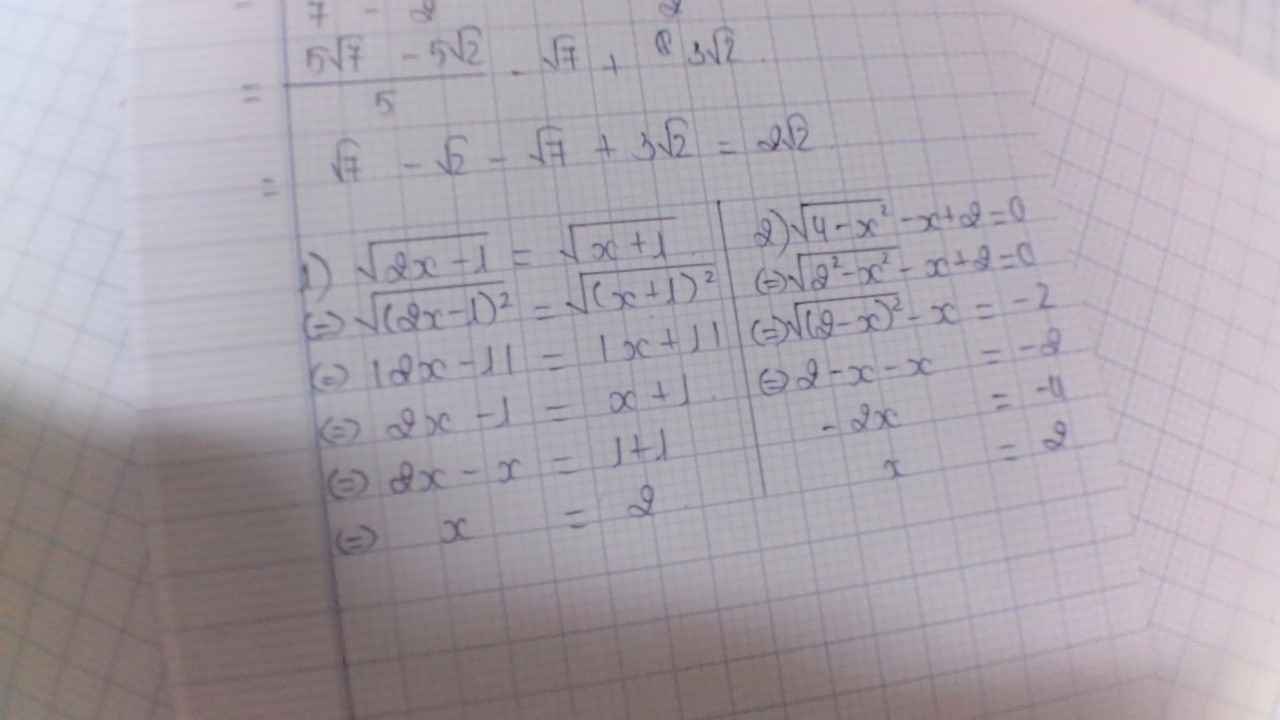 7 - 2 2
= (5√7 - 5√2)/5 - √7 + 3√2.
= √7 - √2 - √7 + 3√2 = 2√2
1) √(2x-1) = √(x+1)
(=) √((2x-1)²) = √((x+1)²)
(=) |2x-1| = |x+1|
(=) 2x - 1 = x + 1.
(=) 2x - x = 1+1
(=) x = 2
2) √(4-x²) - x+2 = 0
(=) √(2²-x²) - x+2 = 0
(=) √((2-x)²) - x = -2
(=) 2-x-x = -2
-2x = -4
x = 2